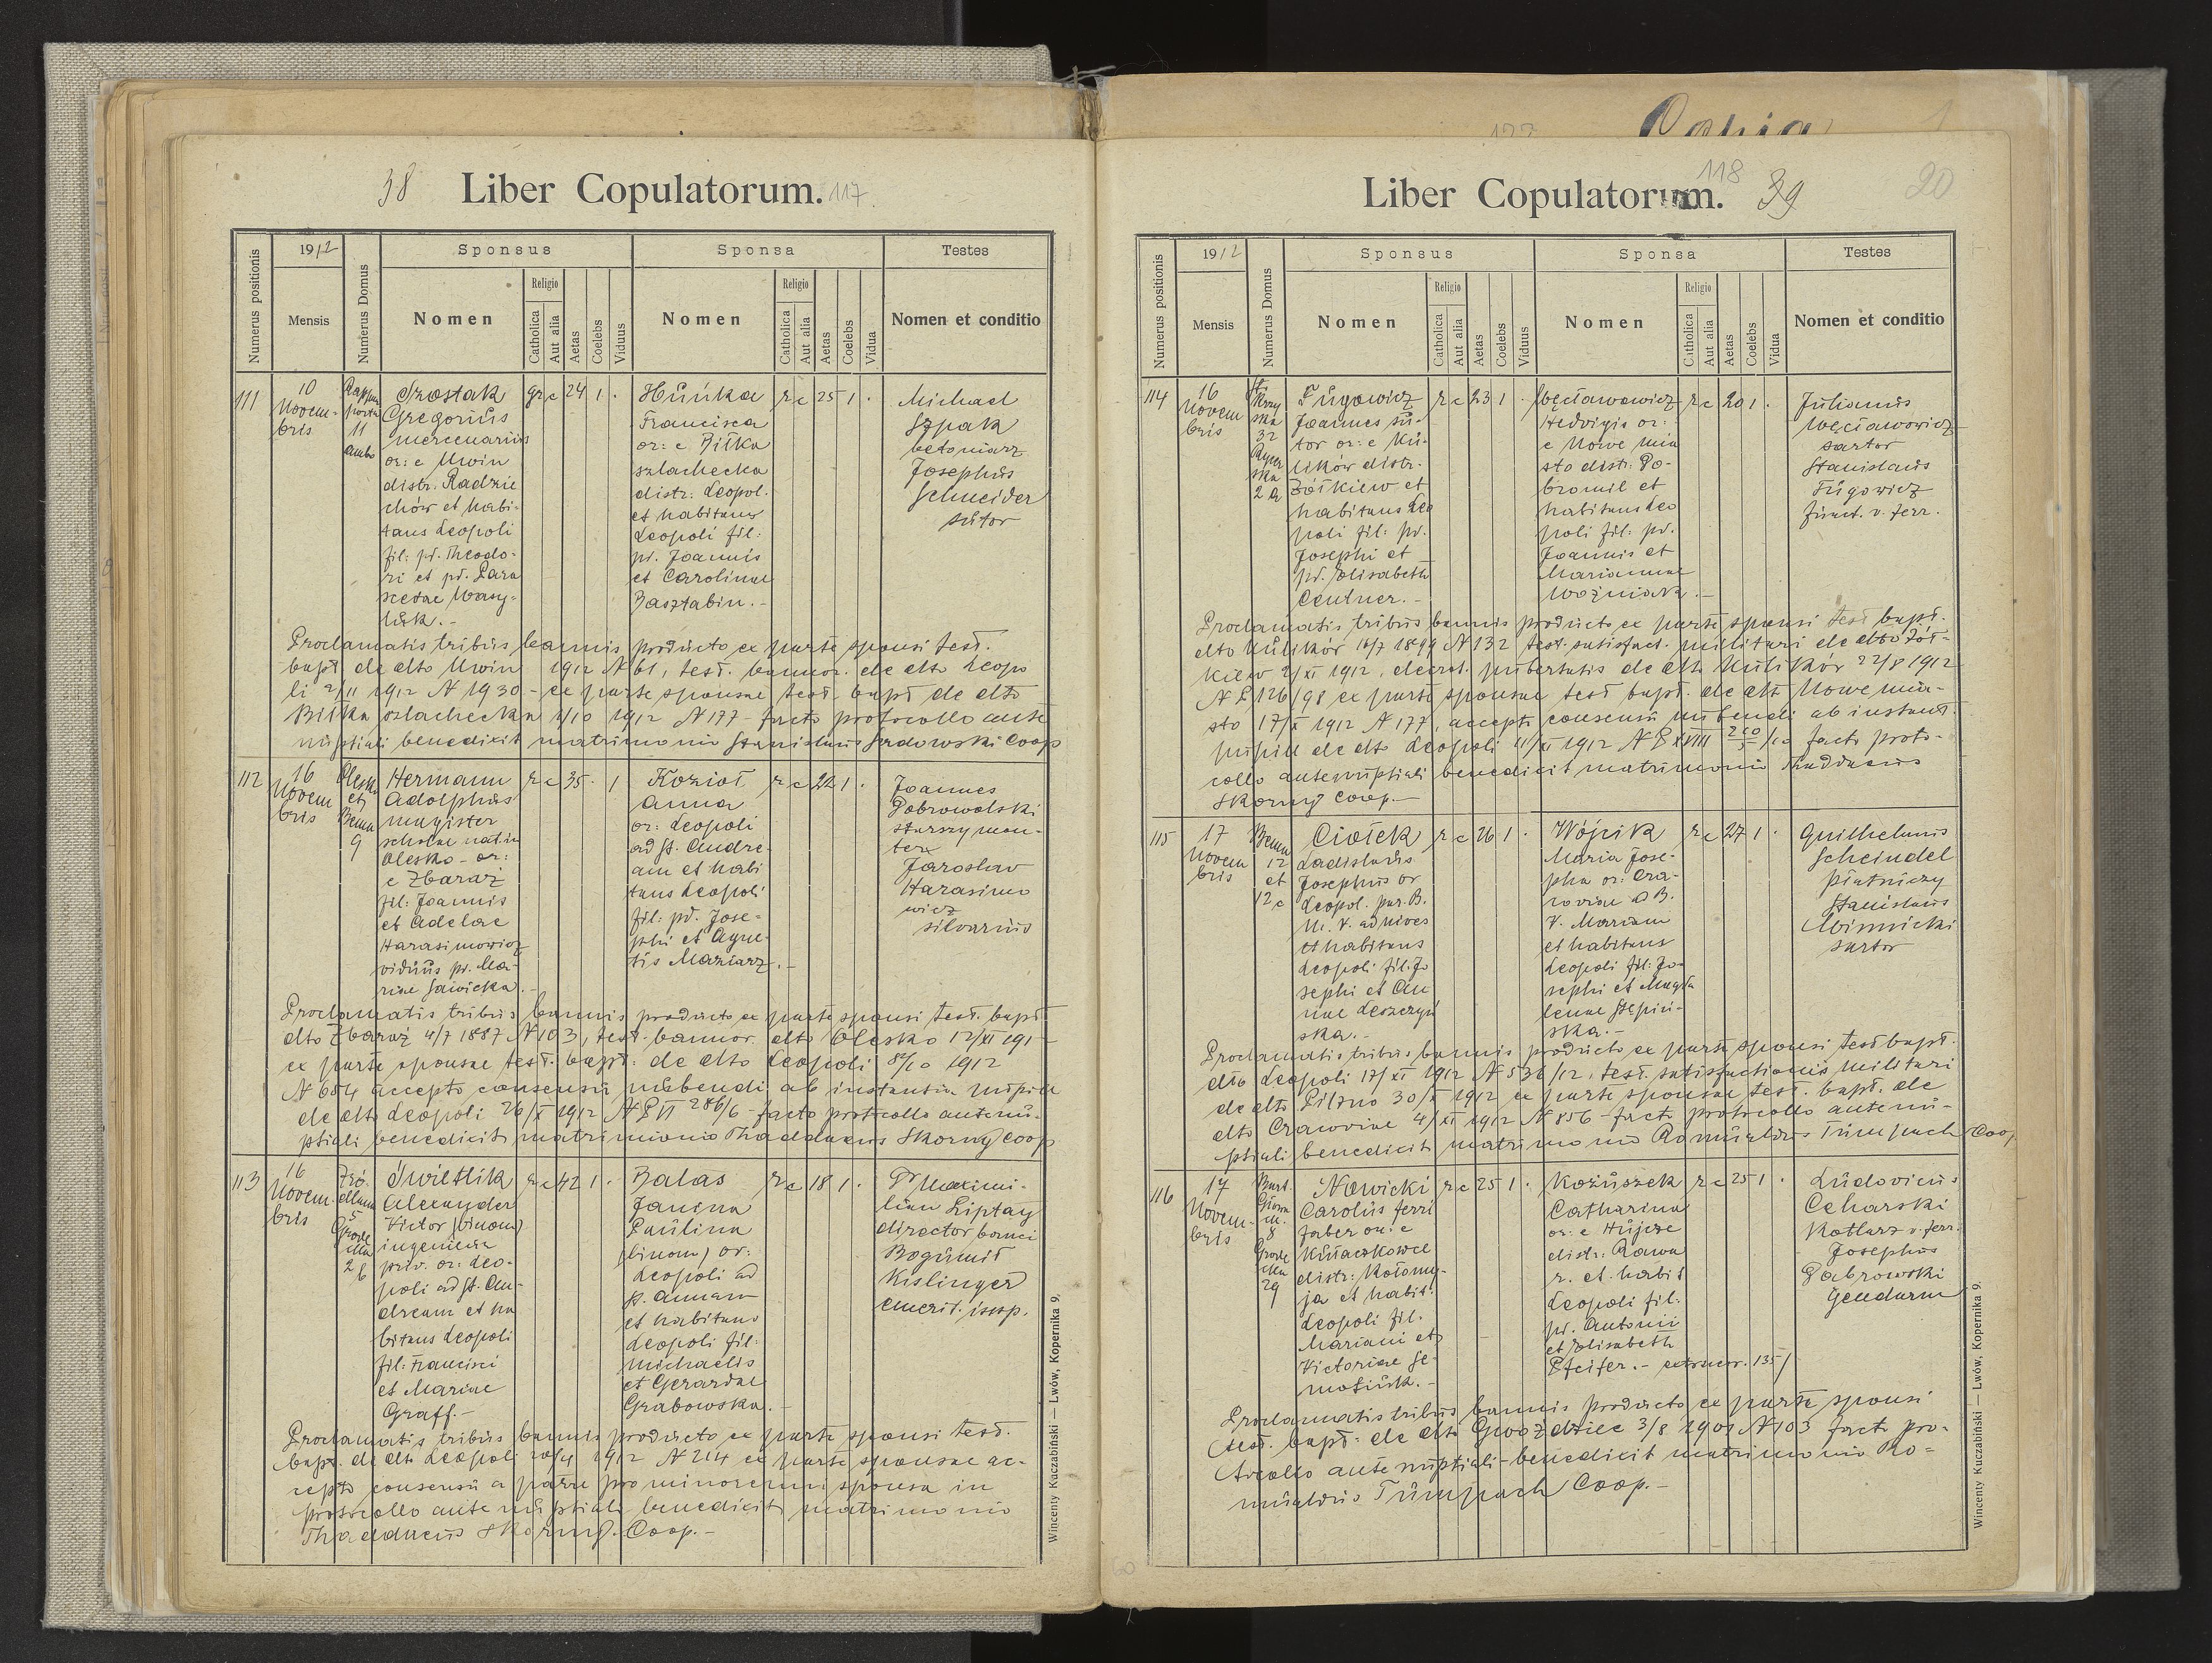 38 Liber Copulatorum. 117.
Numerus positionis
1912
Mensis
Numerus Domus
Sponsus
Nomen
Religio
Catholica
Aut alia
Aetas
Coelebs
Viduus
Sponsa
Nomen
Religio
Catholica
Aut alia
Aetas
Coelebs
Vidua
Testes
Nomen et conditio
111
10
Novem-
bris
11
ambo
Gregorius
mercenarius
or: e Uwin
distr. Radzie
chów et habi-
tans Leopoli
fil: pd. Theodo-
ri et pd. Para
scevae Wasy-
luk.-
gr c 24 1 .
Hunka
Francisca
or: e Biłka
szlachecka
distr: Leopol.
et habitans
Leopoli fil:
pd. Joannis
et Carolinae
Basztabin.-
r c 25 1 .
Michael
Szpak
betoniarz
Josephus
Schneider
sutor
Proclamatis tribus bannis producto ex parte sponsi test.
bapt de dto Uwin 1912 N 61, test. bannor. de dto Leopo
li 2/11 1912 N 1930 - ex parte sponsae test. bapt de dto
Biłka szlachecka 1/10 1912 N 177 - facto protocollo ante
nuptiali benedixit matrimonio Stanislaus Sadowski Coop
112
16
Novem
bris
Olesko
et
Bema
9
Hermann
Adolphus
magister
scholae nat. in
Olesko - or:
e Zbaraż
fil: Joannis
et Adelae
Harasimowicz
viduus p. Ma-
riae Sawicka.
r c 35 . 1
Kozioł
Anna
or: Leopoli
ad St. Andre-
am et habi
tans Leopoli
fil: pd. Jose-
phi et Agne-
tis Maziarz.-
r c 22 1 .
Joannes
Dobrowolski
starszy mon-
ter
Jaroslav
Harasimo
wicz
silvarius
Proclamatis tribus bannis producto ex parte sponsi test. bapt
dto Zbaraż 4/7 1887 N 103, test. bannor. dto Olesko 12/XI 191-
ex parte sponsae test. bapt: de dto Leopoli 1912
N 684 accepto consensu nubendi ab instantia pupill
de dto Leopoli 26/X 1912 N P VI 286/6 - facto protocollo antenu-
ptiali benedixit matrimonio Thaddaeus Skorny Coop
113
16
Novem-
bris
Źró-
dlana
5
Grode
cka
2 b
Świetlik
Alexander
Victor (binom)
ingenieur
priv. or: Leo-
poli ad St. An-
dream et ha
bitans Leopoli
fil: Francisci
et Mariae
Graff.-
r c 42 1 .
Balas
Janina
Paulina
(binom) or:
Leopoli ad
S. Annam
et habitans
Leopoli fil:
Michaelis
et Gerardae
Grabowska.-
r c 18 1 .
Dr Maximi-
lian Liptay
director banci
Bogumił
Kislinger
emerit. insp.
Proclamatis tribus bannis producto ex parte sponsi test.
bapt. de dto Leopoli 1912 N 214 ex parte sponsae ac-
cepto consensu a patre pro minorenni sponsa in
protocollo ante nuptiali benedixit matrimonio
Thaddaeus Skorny. Coop.-
Wincenty Kuczabiński — Lwów, Kopernika 9.
Liber Copulatorum. 118 39 20
Numerus positionis
1912
Mensis
Numerus Domus
Sponsus
Nomen
Religio
Catholica
Aut alia
Aetas
Coelebs
Viduus
Sponsa
Nomen
Religio
Catholica
Aut alia
Aetas
Coelebs
Vidua
Testes
Nomen et conditio
114
16
Novem
bris
32
2 a
Fugowicz
Joannes su-
tor or: e Ku-
likow distr.
Żółkiew et
habitans Leo
poli fil: pd.
Josephi et
pd. Elisabeth
Centner.-
r c 23 1 .
Węcławowicz
Hedvigis or:
e Nowe mia
sto distr: Do-
bromil et
habitans Leo
poli fil: pd.
Joannis et
Mariannae
Woźniak.-
r c 20 1 .
Julianus
Węcławowicz
sartor
Stanislaus
Fugowicz
funct. v. ferr.
Proclamatis tribus bannis producto ex parte sponsi test bapt.
dto Kulików 16/7 1899 N 132 test. satisfact. militari de dto Żół-
kiew 2/XI 1912, decret. pubertatis de dto Kulików 22/8 1912
N P 126/98 ex parte sponsae test bapt. de dto Nowe mia-
sto 17/X 1912 N 177, accepto consensu nubendi ab instant.
pupill de dto Leopoli 11/XI 1912 N P XVIII facto proto-
collo antenuptiali benedixit matrimonio Thaddaeus
Skorny Coop.-
115
17
Novem
bris
Bema
12
et
12 c
Ciołek
Ladislaus
Josephus or
Leopol. par. B.
M. V. ad nives
et habitans
Leopoli fil: Jo
sephi et An
nae Leszczyń
ska.-
r c 26 1 .
Wójcik
Maria Jose-
pha or: Cra-
coviae ad B.
V. Mariam
et habitans
Leopoli fil: Jo-
sephi et Magda
lenae Stepiń-
ska.-
r c 27 1 .
Guilhelmus
Scheindel
Stanislaus
Winnicki
sartor
Proclamatis tribus bannis producto ex parte sponsi test bapt.
dto Leopoli 17/XI 1912 N 536/12, test. satisfactionis militari
de dto Pilzno 30/X 1912 ex parte sponsae test. bapt. de
dto Cracoviae 4/XI 1912 N 856 - facto protocollo antenu-
ptiali benedixit matrimonio Romualdus Tumpach Coop
116
17
Novem-
bris
8
Grode
cka
29
Nowicki
Carolus ferri
faber or: e
Kułaczkowce
distr: Kołomy-
ja et habit:
Leopoli fil.
Mariani et
Victoriae Se-
maniuk.-
r c 25 1 .
Kożuszek
Catharina
or: e Hujcze
distr: Rawa
r. et habit
Leopoli fil:
pd. Antonii
et Elisabeth
Pfeifer.- 135/
r c 25 1 .
Ludovicus
Ceharski
Kotlarz v. ferr.
Josephus
Dąbrowski
Gendarm
Proclamatis tribus bannis producto ex parte sponsi
test. bapt: de dto Gwoździec 3/8 1901 N 103 facto pro-
tocollo ante nuptiali - benedixit matrimonio Ro-
mualdus Tumpach Coop.-
Wincenty Kuczabiński — Lwów, Kopernika 9.